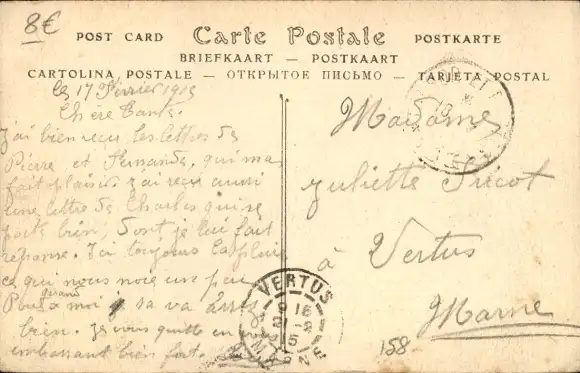 8€
POST CARD — Carte Postale — POSTKARTE
BRIEFKAART — POSTKAART
CARTOLINA POSTALE — ОТКРЫТОЕ ПИСЬМО — TARJETA POSTAL
17 Février 1915
Chère Tante.
J'ai bien reçu les lettres de
Pierre et Fernande, qui m'a
fait plaisir. J'ai reçu aussi
une lettre de Charles qui se
porte bien, dont je lui fait
réponse. J'ai toujours la pluie
ce qui nous noie un peu
Pour moi sa va très
bien. Je vous quitte en
embrassant bien fort.
Madame
Juliette Tricot
à
Vertus
Marne
VERTUS
MARNE
158